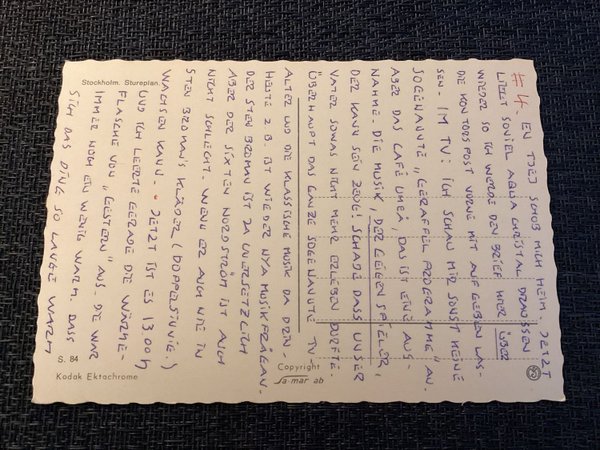 #4 EN TJEJ SCHOB MICH HEIM, JETZT
LIEGT SOVIEL AQUA CHRISTAL DRAUSSEN
WIEDER SO ICH WERDE DEN BRIEF HIER ÜBER
DIE KONTORS POST VORNE MIT AUFGEBEN LAS-
SEN. IM TV: ICH SCHAU MIR SONST KEINE
SOGENANNTE „GERAFFEL PROGRAMME" AN.
ABER DAS CAFÉ UMEÅ, DAS IST EINE AUS-
NAHME. DIE MUSIK, DER GEIGENSPIELER,
DER KANN SEIN ZEUG! SCHADE DASS UNSER
VATER SOWAS NICHT MEHR ERLEBEN DURFTE.
ÜBERHAUPT DAS GANZE SOGENANNTE TV-
ALTER UND DIE KLASSISCHE MUSIK DA DRIN.
HEUTE Z.B. IST WIEDER NYA MUSIKFRÅGAN.
DER STEN BROMAN IST JA UNERSETZLICH
ABER DER SIXTEN NORDSTRÖM IST AUCH
NICHT SCHLECHT. WENN ER AUCH NIE IN
STEN BROMAN'S KLÄDER (DOPPELSINNIG.)
WACHSEN KANN.- JETZT IST ES 13 00 h
UND ICH LEERTE GERADE DIE WÄRME-
FLASCHE VON „GESTERN" AUS. DIE WAR
IMMER NOCH EIN WENIG WARM. DASS
SICH DAS DING SO LANGE WARM
Stockholm. Stureplan.
S. 84
Kodak Ektachrome
Copyright
Sa-mar ab